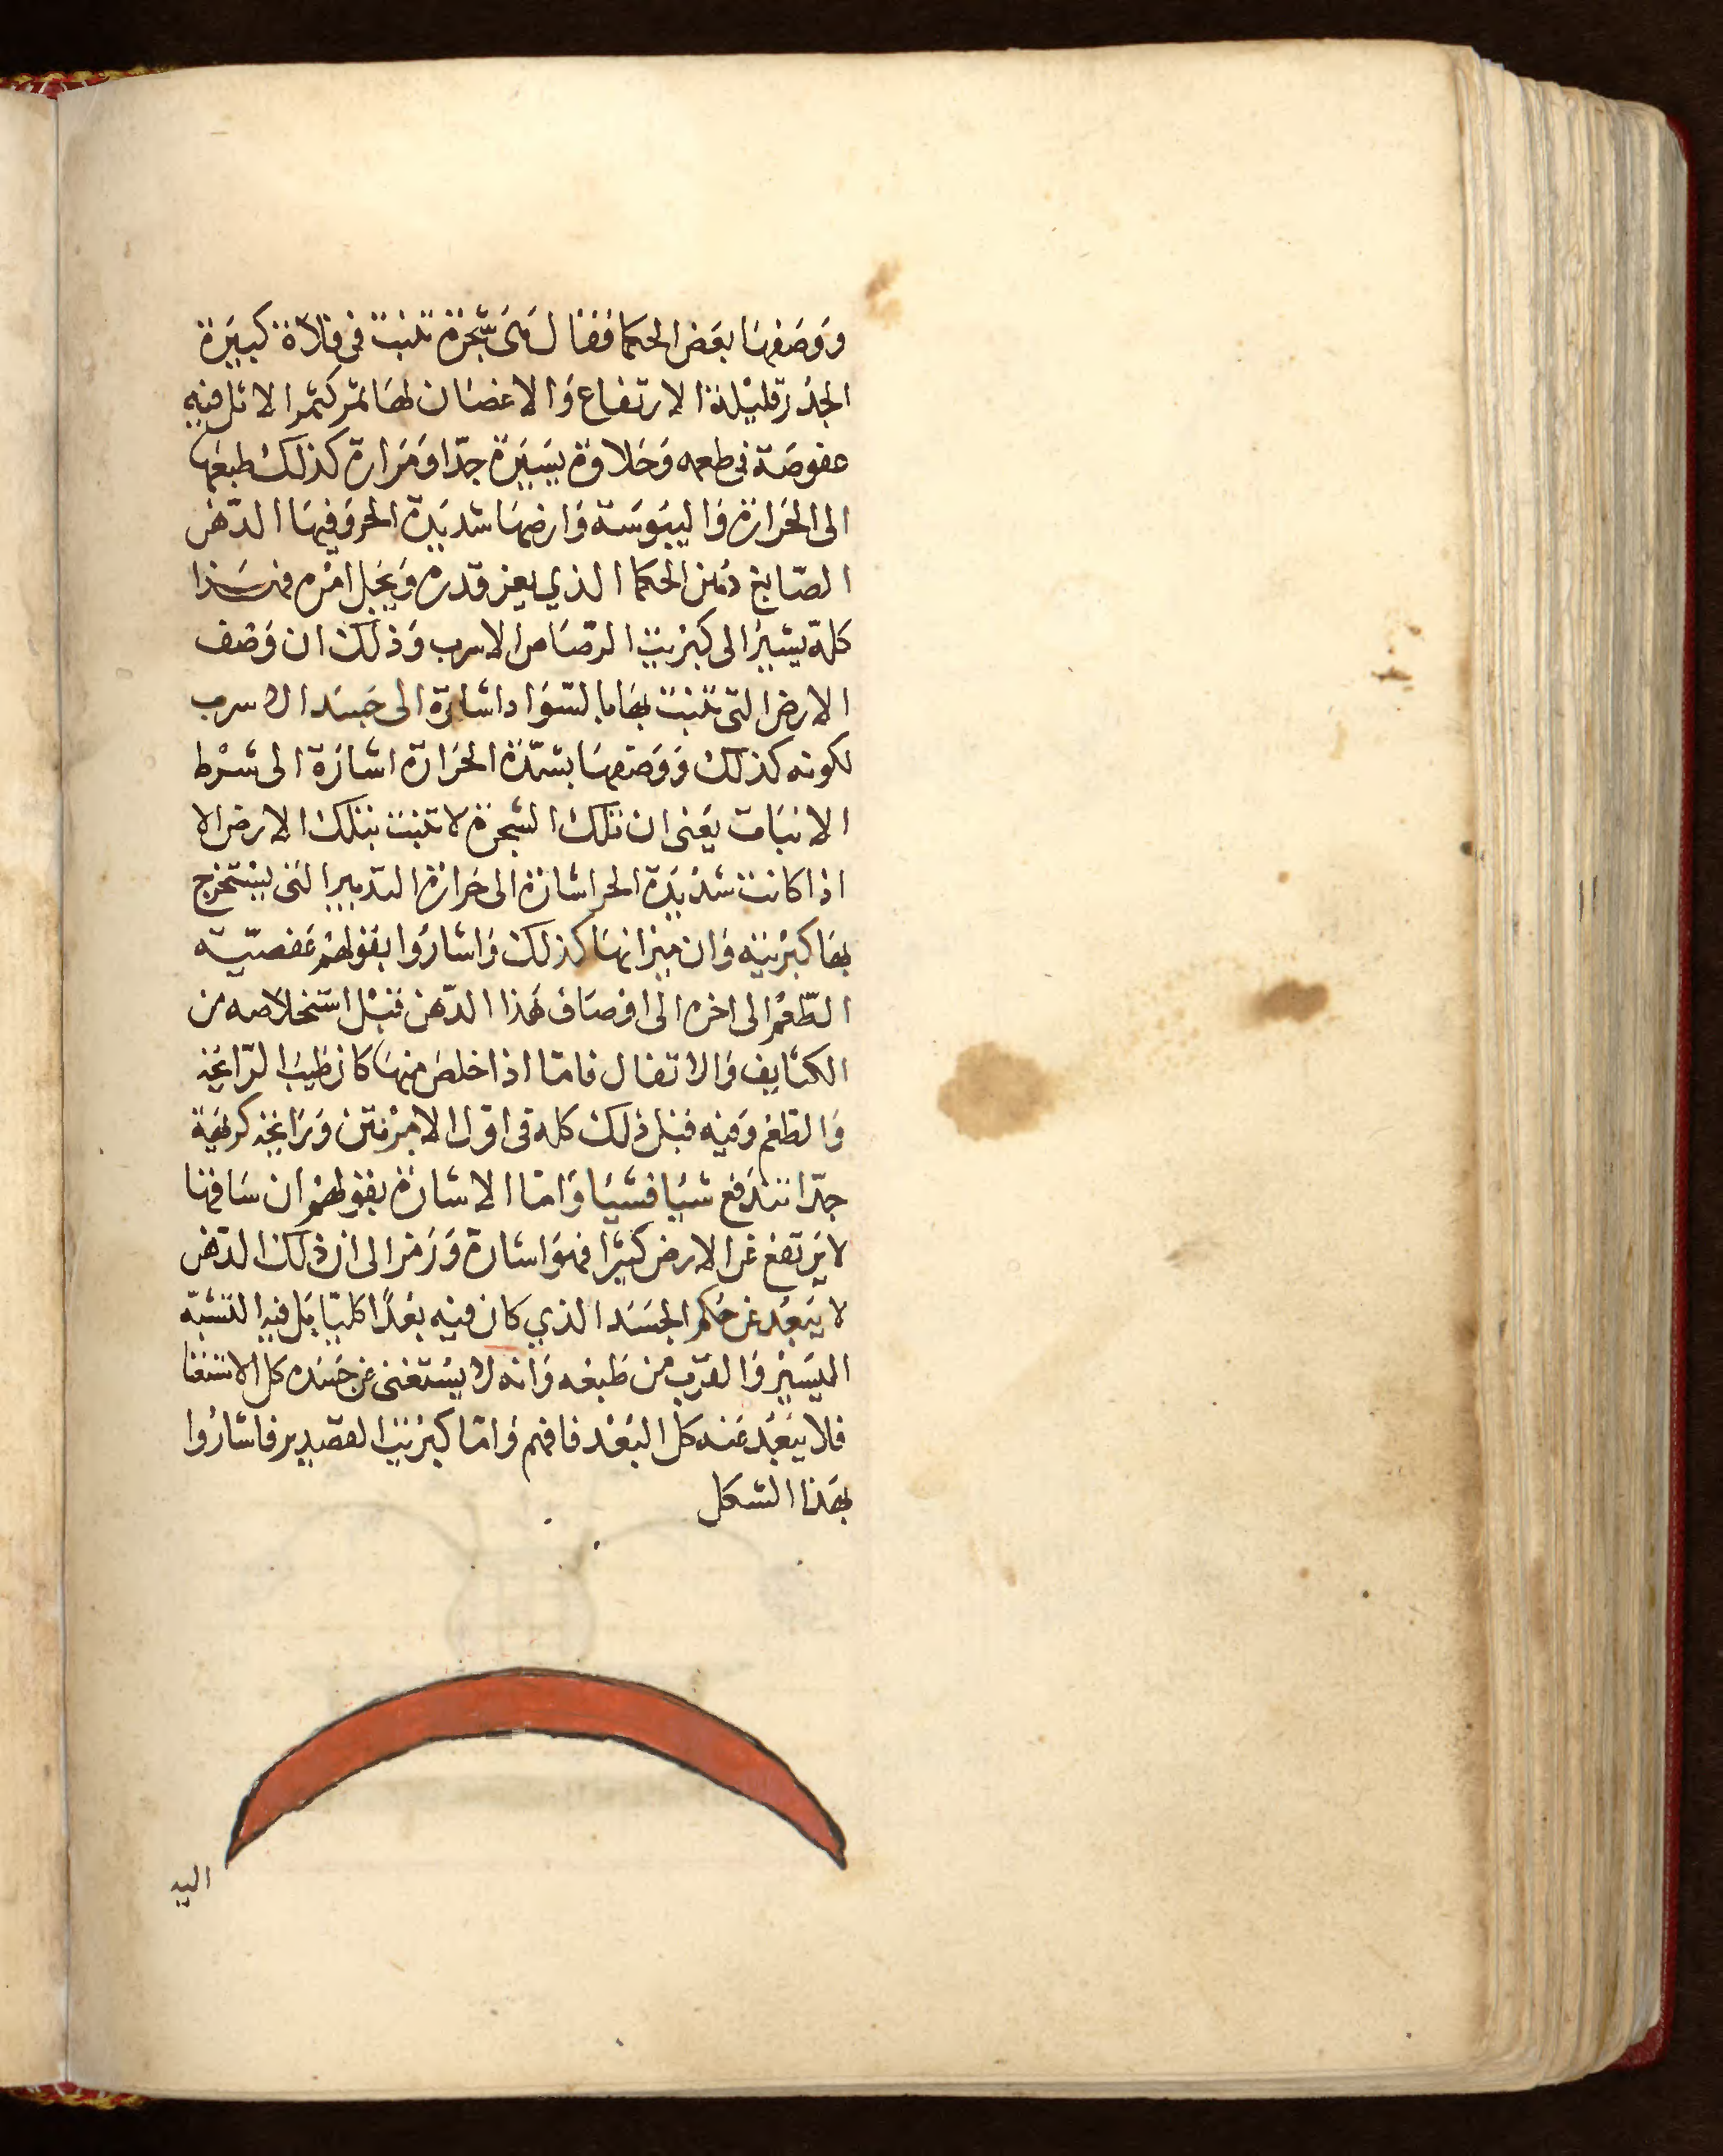 ووصفها بعض الحكما فقال هى شجرة تنبت فى فلاة كبيرة
الجذر قليلة الارتفاع والاغصان لها ثمر كثمر الاثل فيه
عفوصة فى طعمه وحلاوة يسيرة جدا ومرارة كذلك طبعها
الى الحرارة واليبوسة وارضها شديدة الحر وفيها الدهن
الصابغ دهن الحكما الذي يعز قدره ويجل امره فهذا
كله يشير الى كبريت الرصاص الاسرب وذلك ان وصف
الارض التى تنبت بها بالسواد اشارة الى جسد الاسرب
لكونه كذلك ووصفها بشدة الحرارة اشارة الى شرط
الانبات يعنى ان تلك الشجرة لا تنبت بتلك الارض الا
اذا كانت شديدة الحر اشارة الى حرارة التدبير التى يستخرج
بها كبريته وان ميزانها كذلك واشاروا بقولهم عفصية
الطعم الى اخره الى اوصاف هذا الدهن قبل استخلاصه من
الكثايف والاتفال فاما اذا خلص منها كان طيب الرايحة
والطعم وفيه قبل ذلك كله فى اول الامر نتن ورايحة كريهة
جدا تندفع شيا فشيا واما الاشارة بقولهم ان ساقها
لا يرتفع عن الارض كثيرا فهو اشارة ورمز الى ان ذلك الدهن
لا يبعد عن حكم الجسد الذي كان فيه بعدا كليا بل فيه التشبه
اليسير والقرب من طبعه وانه لا يستغنى عن جسده كل الاستغنا
فلا يبعد عنه كل البعد فافهم واما كبريت القصدير فاشاروا
بهذا الشكل
اليه
١١